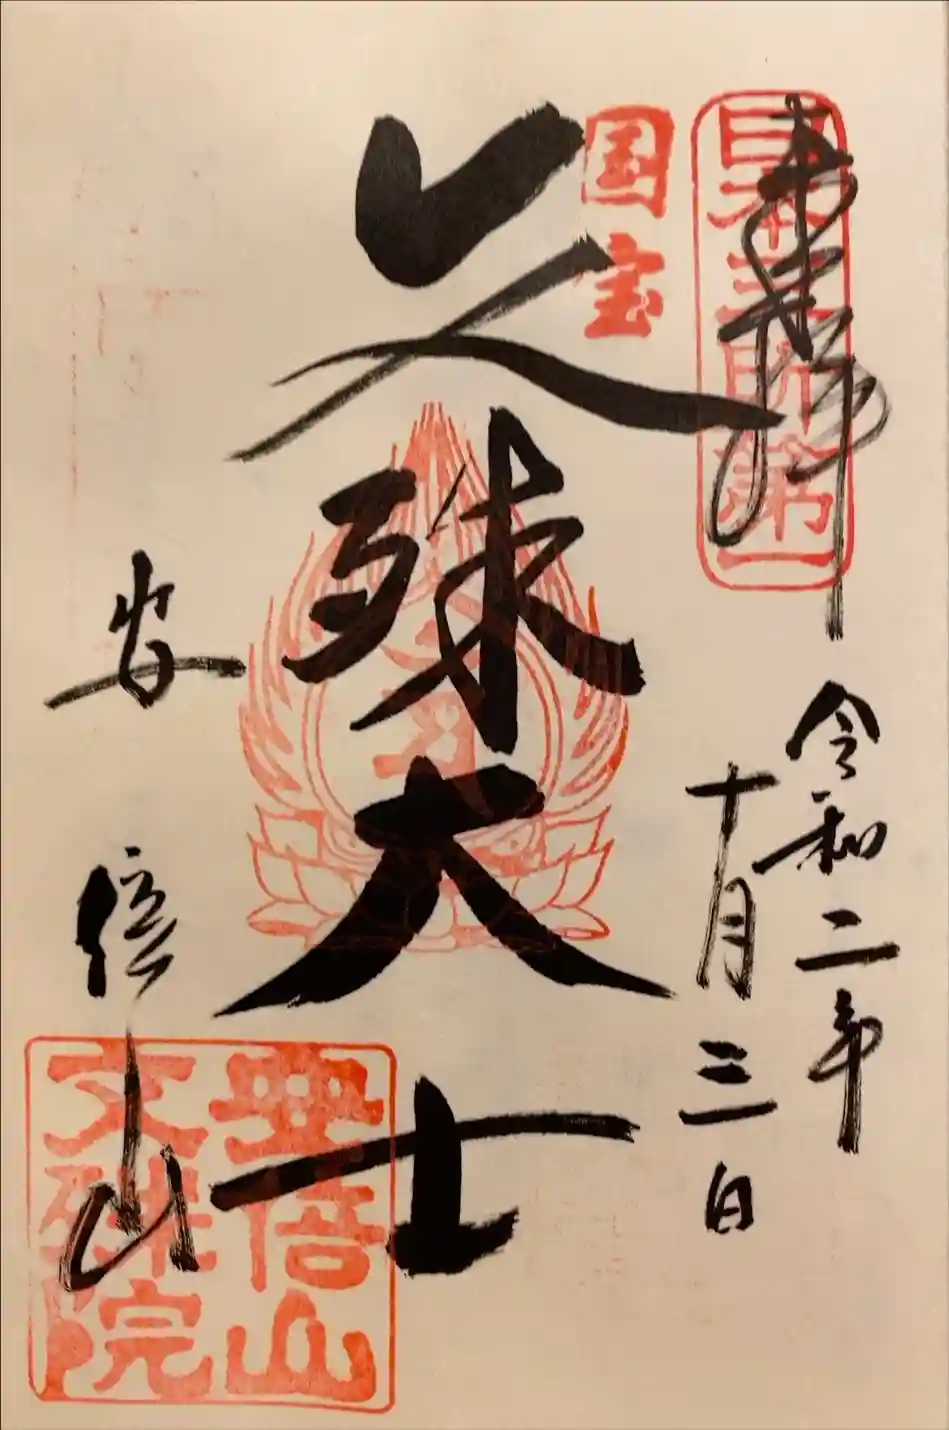 奉拝
日本三所第一
令和二年
十月三日
国宝
文殊大士
安倍山
安倍山
文殊院